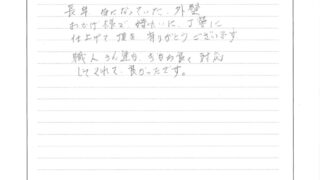 長年 気になっていた、外壁
おかげ様で、綺麗に、丁寧に
仕上げて頂き 有りがとうございます
職人さん達も 気持良く対応
してくれて、良かったです。